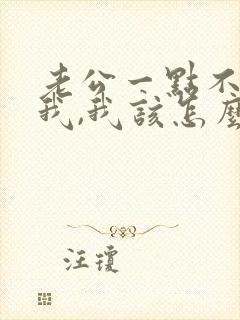 老公一點不
我,我該怎麼
汪瓊